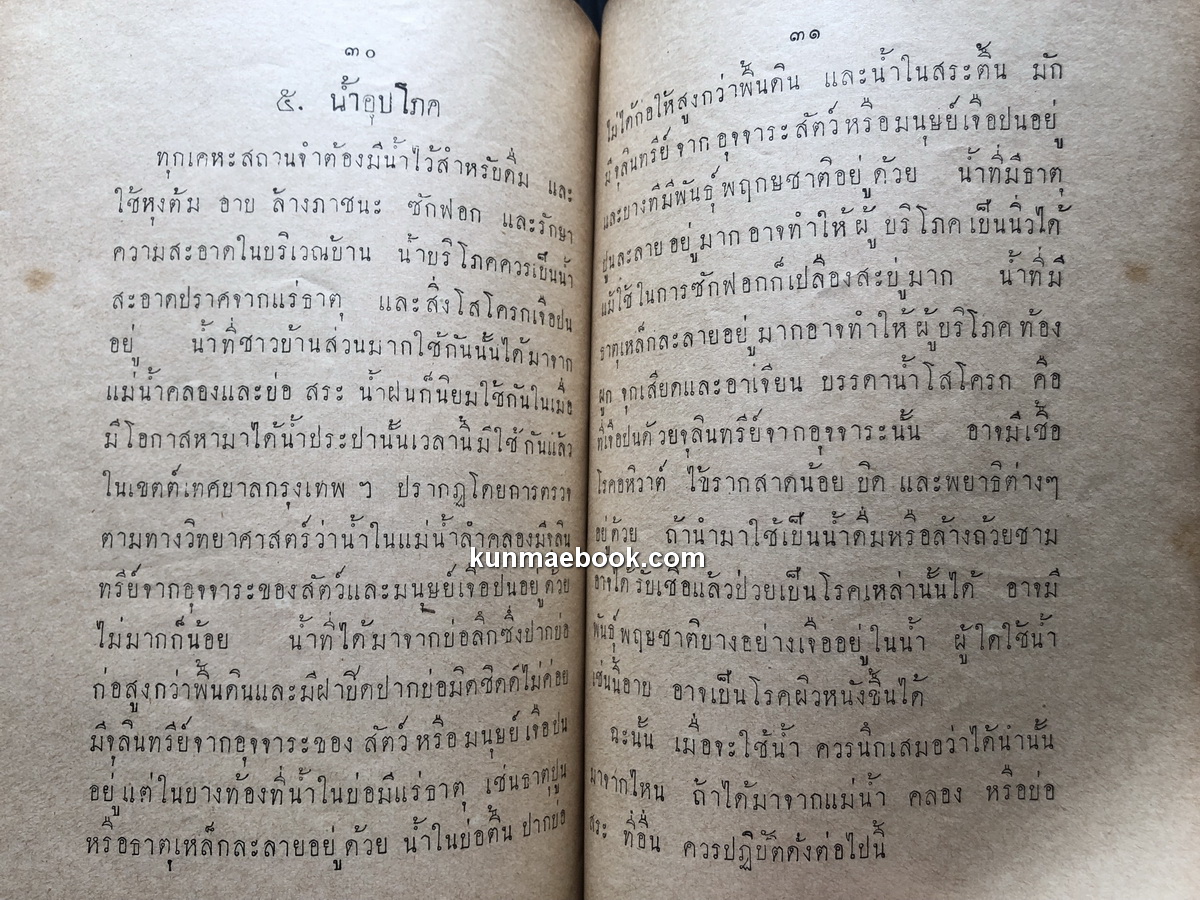 ๓๐
๕. น้ำอุบโภค
ทุกเคหะสถานจำต้องมีน้ำไว้สำหรับดื่ม และ
ใช้หุงต้ม อาบ ล้างภาชนะ ซักฟอก และรักษา
ความสะอาดในบริเวณบ้าน น้ำบริโภคควรเป็นน้ำ
สะอาดปราศจากแร่ธาตุ และสิ่งโสโครกเจือปน
อยู่ น้ำที่ชาวบ้านส่วนมากใช้กันนั้นได้มาจาก
แม่น้ำคลองและบ่อ สระ น้ำฝนก็นิยมใช้กันในเมื่อ
มีโอกาสหามาได้น้ำประปานั้นเวลานี้มีใช้กันแล้ว
ในเขตต์เทศบาลกรุงเทพ ฯ ปรากฏโดยการตรวจ
ตามทางวิทยาศาสตร์ว่าน้ำในแม่น้ำลำคลองมีจุลิน
ทรีย์จากอุจจาระของสัตว์และมนุษย์เจือปนอยู่ด้วย
ไม่มากก็น้อย น้ำที่ได้มาจากบ่อลึกซึ่งปากบ่อ
ก่อสูงกว่าพื้นดินและมีฝาปิดปากบ่อมิดชิดดีไม่ค่อย
มีจุลินทรีย์จากอุจจาระของ สัตว์ หรือ มนุษย์ เจือปน
อยู่ แต่ในบางท้องที่น้ำในบ่อมีแร่ธาตุ เช่นธาตุปูน
หรือธาตุเหล็กละลายอยู่ด้วย น้ำในบ่อตื้น ปากบ่อ
๓๑
ไม่ได้ก่อให้สูงกว่าพื้นดิน และน้ำในสระตื้น มัก
มีจุลินทรีย์ จาก อุจจาระ สัตว์ หรือ มนุษย์ เจือปน อยู่
และบางทีมีพันธุ์ พฤกษชาติอยู่ ด้วย น้ำที่มีธาตุ
ปูนละลาย อยู่ มาก อาจทำให้ ผู้ บริโภค เป็นนิ่วได้
แม้ใช้ ในการซักฟอกก็เปลืองสะบู่มาก น้ำที่มี
ธาตุเหล็กละลายอยู่ มากอาจทำให้ ผู้ บริโภค ท้อง
ผูก จุกเสียดและอาเจียน บรรดาน้ำโสโครก คือ
ที่เจือปนด้วยจุลินทรีย์จากอุจจาระนั้น อาจมีเชื้อ
โรคอหิวาต์ ไข้รากสาดน้อย บิด และพยาธิต่างๆ
อยู่ด้วย ถ้านำมาใช้เป็นน้ำดื่มหรือล้างถ้วยชาม
อาจได้รับเชื้อแล้วป่วยเป็นโรคเหล่านั้นได้ อาจมี
พันธุ์ พฤษชาติบางอย่างเจืออยู่ ในน้ำ ผู้ ใดใช้น้ำ
เช่นนี้อาบ อาจเป็นโรคผิวหนังขึ้นได้
ฉะนั้น เมื่อจะใช้น้ำ ควรนึกเสมอว่าได้น้ำนั้น
มาจากไหน ถ้าได้มาจากแม่น้ำ คลอง หรือบ่อ
สระ ที่อื่น ควรปฏิบัติดังต่อไปนี้
kunmaebook.com